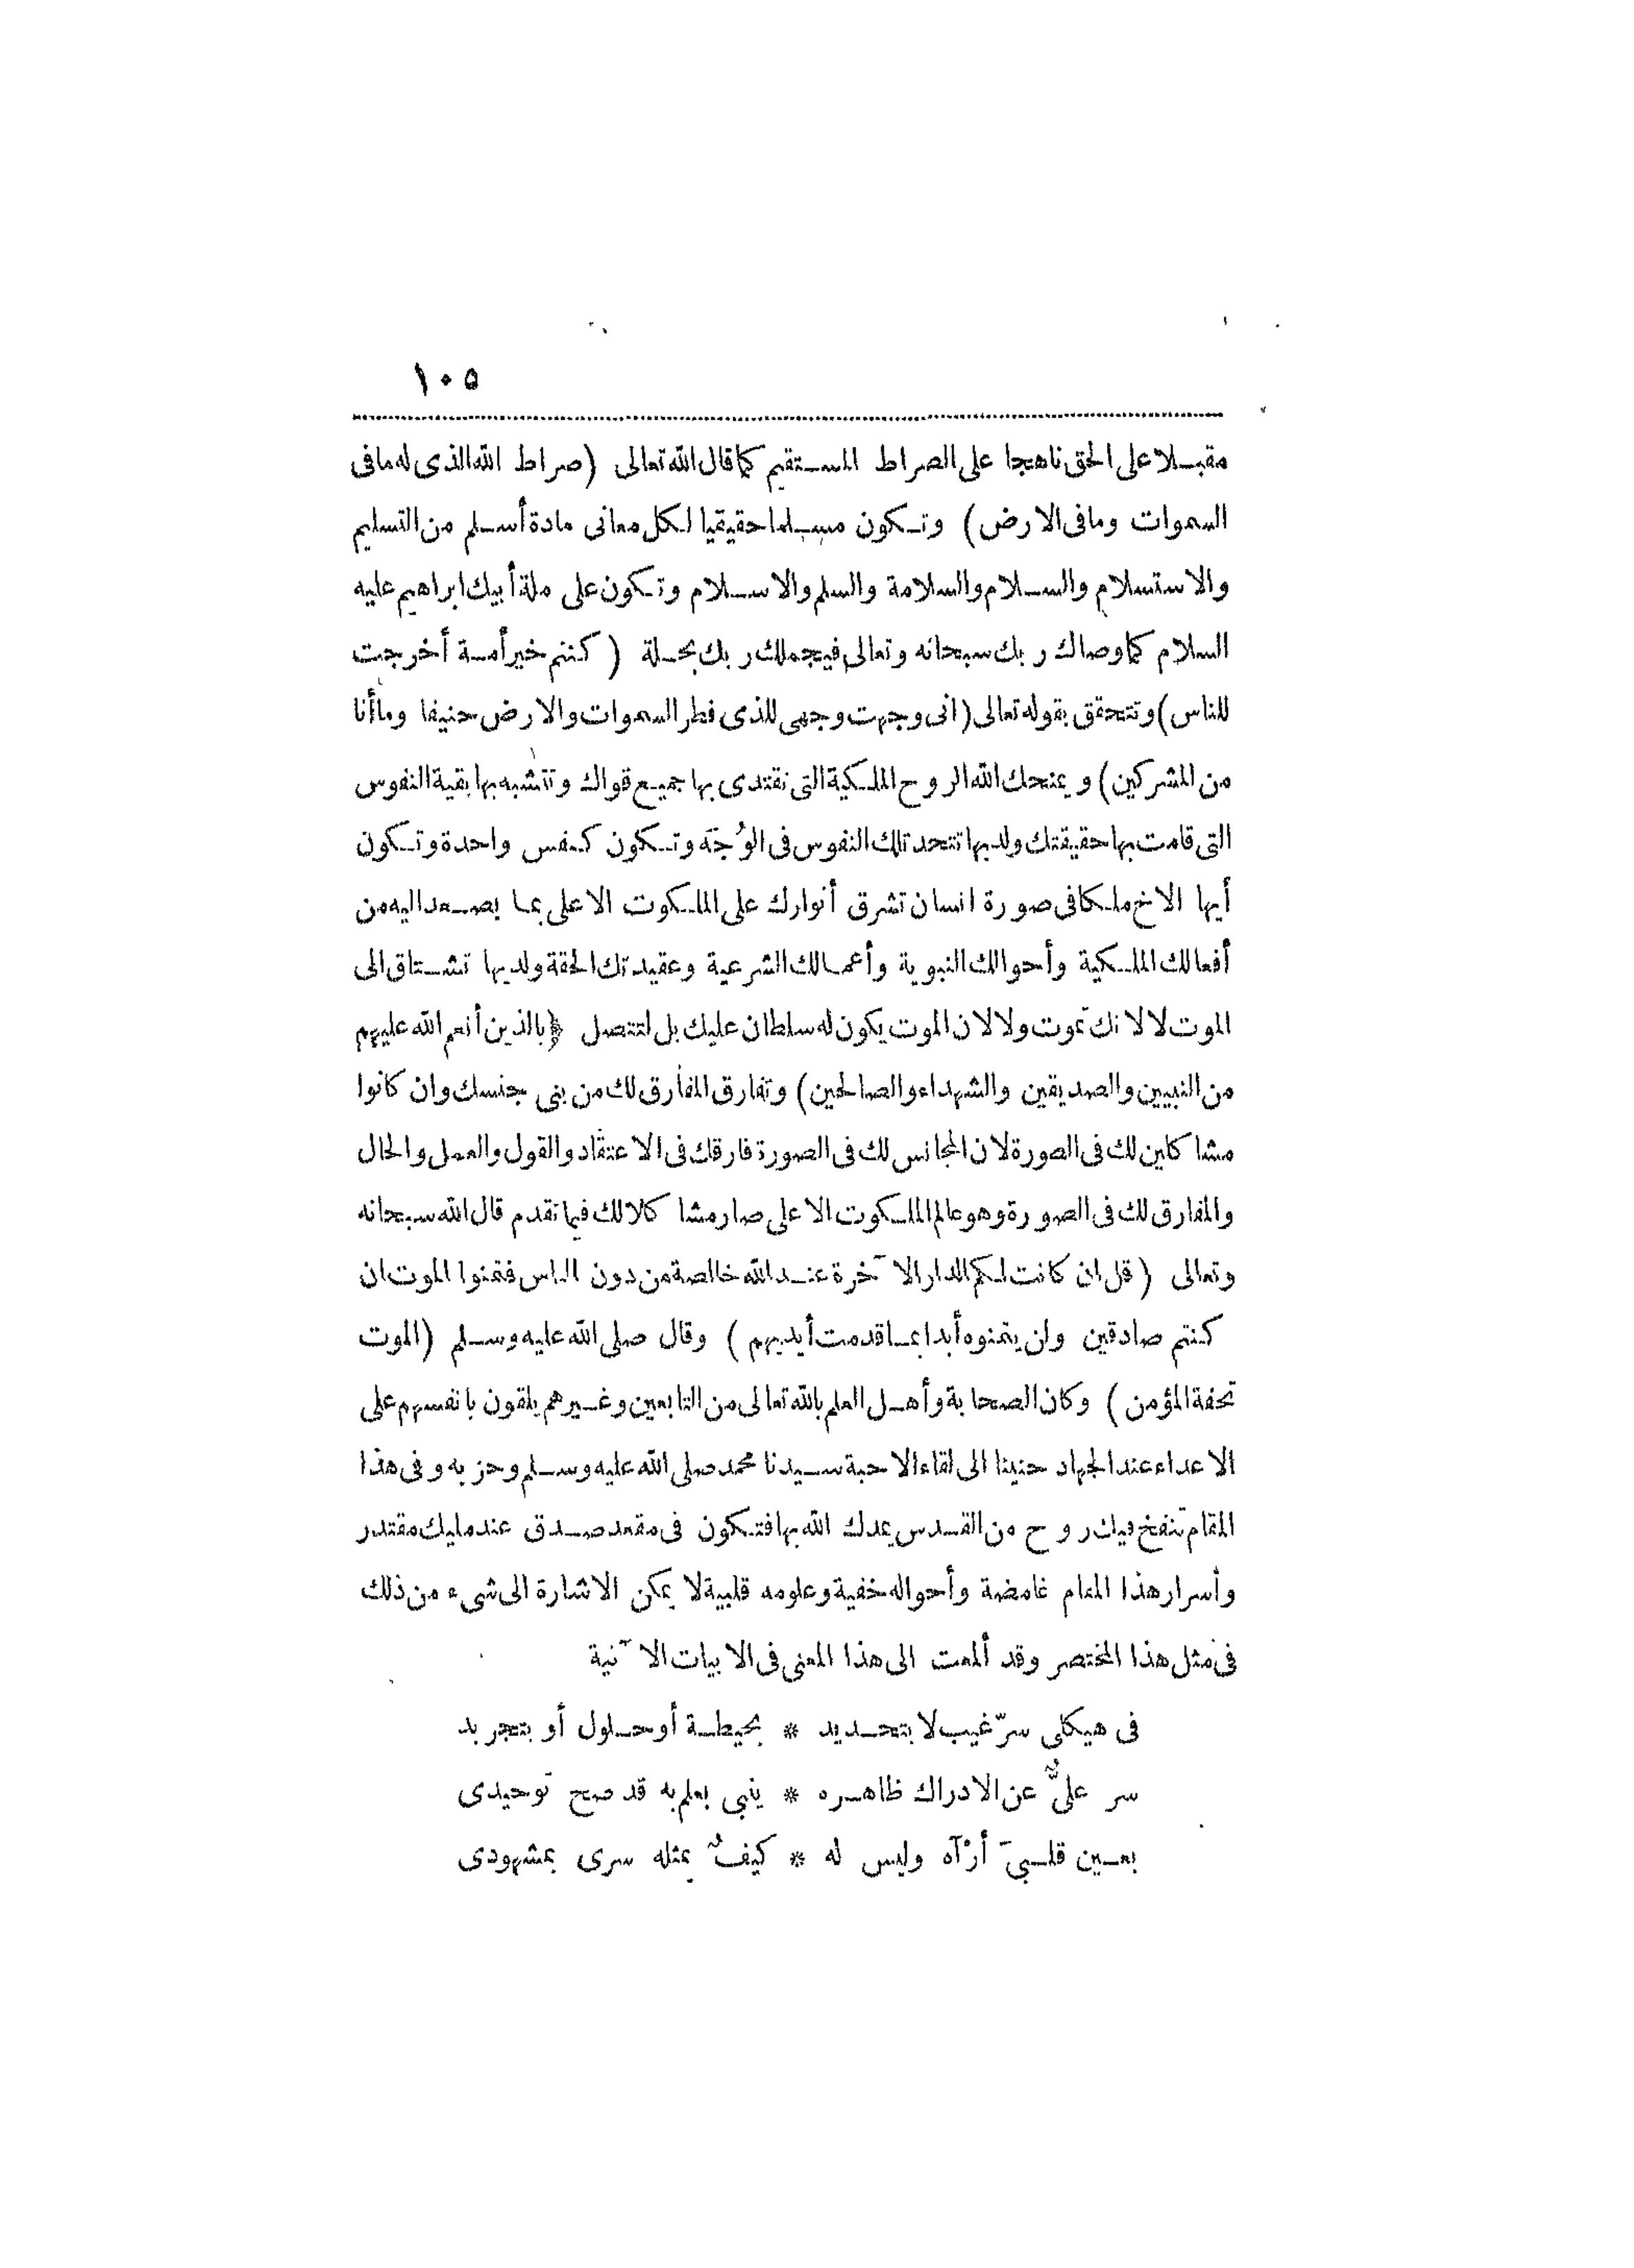 ١٠٥
مقبلا على الحق ناهجا على الصراط المستقيم كما قال الله تعالى (صراط الله الذى له ما فى
السموات وما فى الارض) وتكون مسلما حقيقيا لكل معانى مادة أسلم من التسليم
والاستسلام والسلام والسلامة والسلم والاسلام وتكون على ملة أبيك ابراهيم عليه
السلام كما وصاك ربك سبحانه وتعالى فيجملك ربك بحلة (كنتم خير أمة أخرجت
للناس) وتتحقق بقوله تعالى (انى وجهت وجهى للذى فطر السموات والارض حنيفا وما أنا
من المشركين) ويمنحك الله الروح الملكية التى تقتدى بها جميع قواك وتتشبه بها بقية النفوس
التى قامت بها حقيقتك ولديها تتحد تلك النفوس فى الوُجَه وتكون كنفس واحدة وتكون
أيها الاخ ملكا فى صورة انسان تشرق أنوارك على الملكوت الاعلى بما يصعد اليه من
أفعالك الملكية وأحوالك النبوية وأعمالك الشرعية وعقيدتك الحقة ولديها تشتاق الى
الموت لا لانك تموت ولا لان الموت يكون له سلطان عليك بل لتتصل (بالذين أنعم الله عليهم
من النبيين والصديقين والشهداء والصالحين) وتفارق المفارق لك من بنى جنسك وان كانوا
مشاكلين لك فى الصورة لان المجانس لك فى الصورة فارقك فى الاعتقاد والقول والعمل والحال
والمفارق لك فى الصورة وهو عالم الملكوت الاعلى صار مشاكلا لك فيما تقدم قال الله سبحانه
وتعالى (قل ان كانت لكم الدار الآخرة عند الله خالصة من دون الناس فتمنوا الموت ان
كنتم صادقين ولن يتمنوه أبدا بما قدمت أيديهم) وقال صلى الله عليه وسلم (الموت
تحفة المؤمن) وكان الصحابة وأهل العلم بالله تعالى من التابعين وغيرهم يلقون بانفسهم على
الاعداء عند الجهاد حنينا الى لقاء الاحبة سيدنا محمد صلى الله عليه وسلم وحزبه وفى هذا
المقام تنفخ فيك روح من القدس يمدك الله بها فتكون فى مقعد صدق عند مليك مقتدر
وأسرار هذا المقام غامضة وأحواله خفية وعلومه قلبية لا يمكن الاشارة الى شىء من ذلك
فى مثل هذا المختصر وقد ألمعت الى هذا المعنى فى الابيات الآتية
فى هيكلى سرّ غيب لا بتحديد * بحيطة أو حلول أو بتجريد
سر علىٌّ عن الادراك ظاهره * ينبى بعلم به قد صح توحيدى
بعين قلبىَ أرْآه وليس له * كيفٌ يمثله سرى بمشهودى